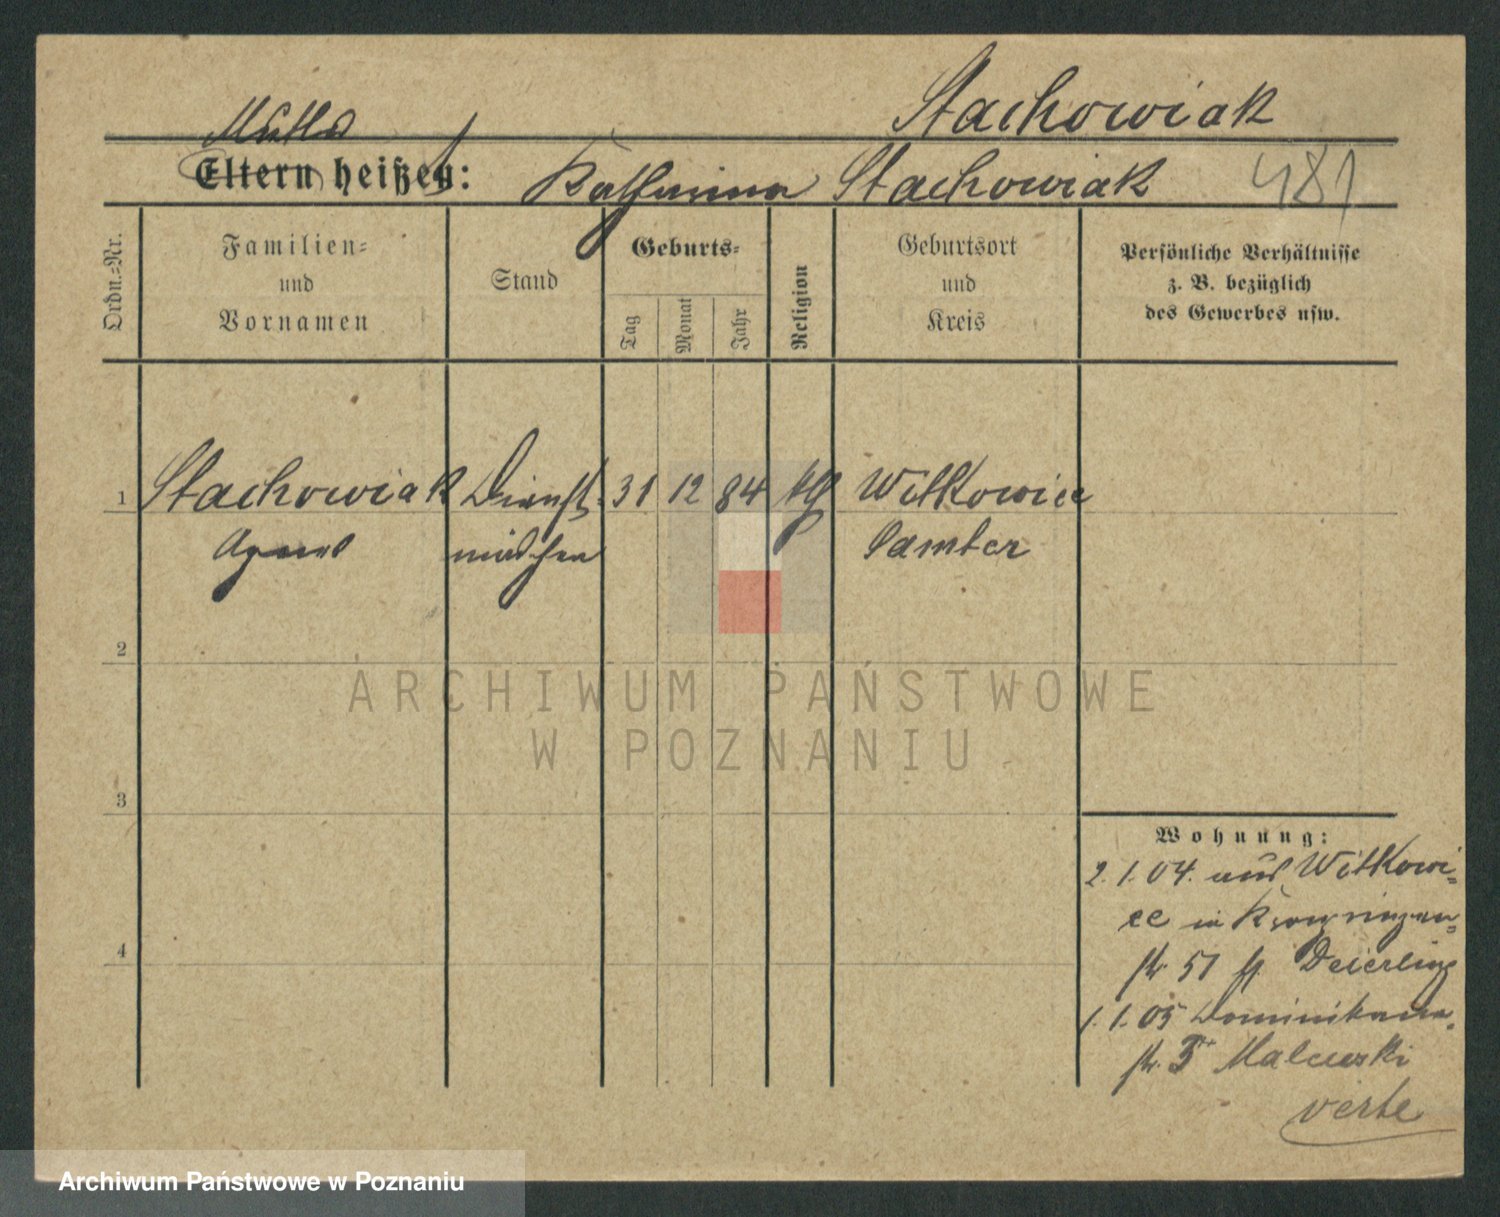 Stachowiak
Mutter
Eltern heißen: Katharina Stachowiak 481
Ordn.=Nr.
Familien=
und
Vornamen
Stand
Geburts=
Tag
Monat
Jahr
Religion
Geburtsort
und
Kreis
Persönliche Verhältnisse
z. B. bezüglich
des Gewerbes usw.
1 Stachowiak Dienst= 31 12 84 kth Witkowice
Agnes mädchen Samter
2
ARCHIWUM PAŃSTWOWE
W POZNANIU
3
4
Wohnung:
2. 1. 04. aus Witkowi=
ce in Kronprinzen=
str 51 Deierling
1. 1. 05 Dominikaner=
str. Malewski
verte
Archiwum Państwowe w Poznaniu